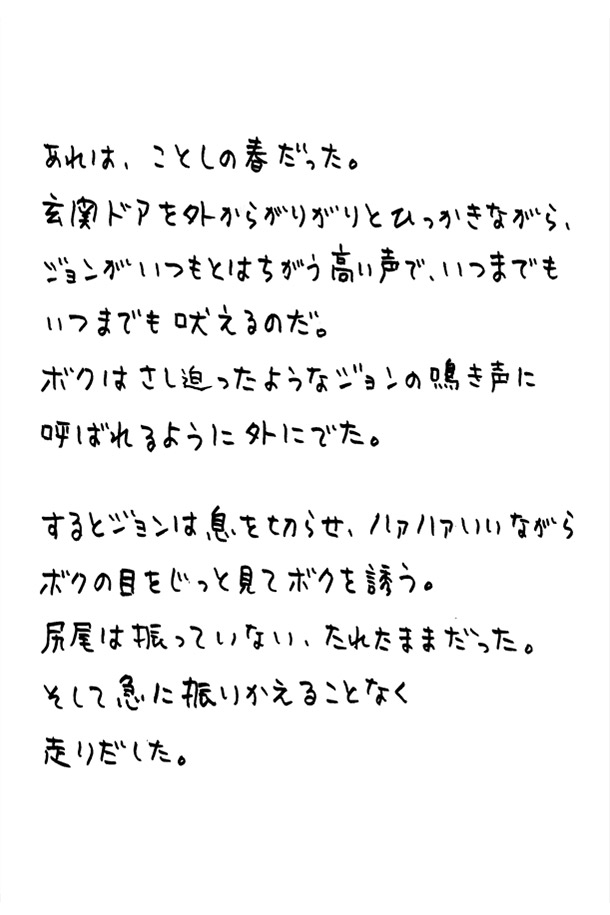 あれは、ことしの春だった。
玄関ドアを外からがりがりとひっかきながら、
ジョンがいつもとはちがう高い声で、いつまでも
いつまでも吠えるのだ。
ボクはさし迫ったようなジョンの鳴き声に
呼ばれるように外にでた。
するとジョンは息を切らせ、ハァハァいいながら
ボクの目をじっと見てボクを誘う。
尻尾は振っていない、たれたままだった。
そして急に振りかえることなく
走りだした。